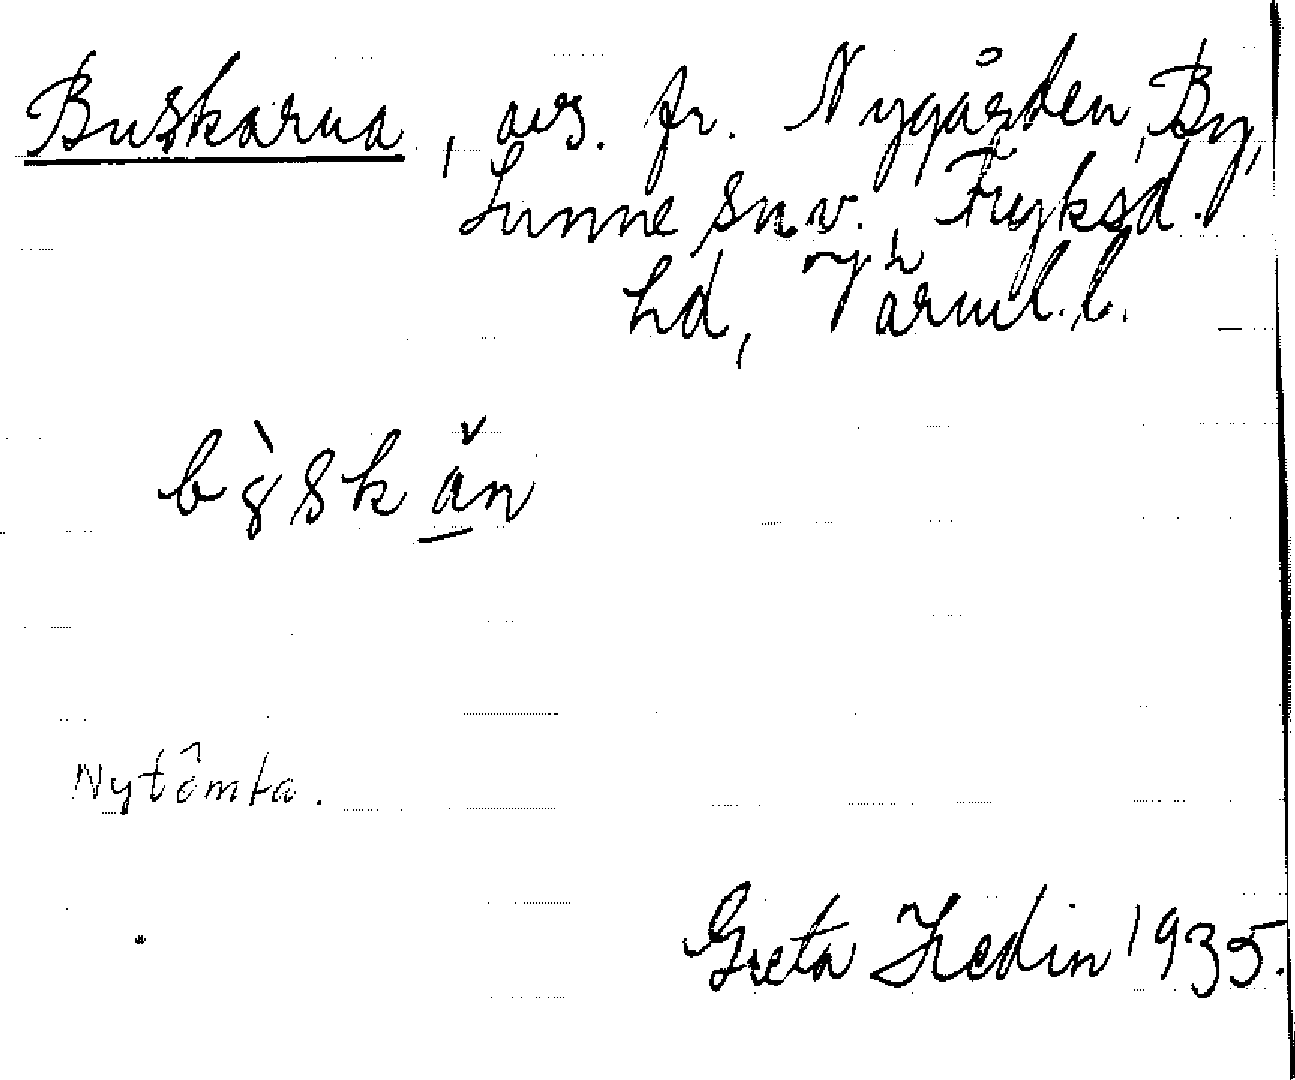 Buskarna, avs. fr. Nygården, By,
Sunne sn. v. Fryksd.
hd, Värml. l.
Nytomta.
Greta Hedin 1935.